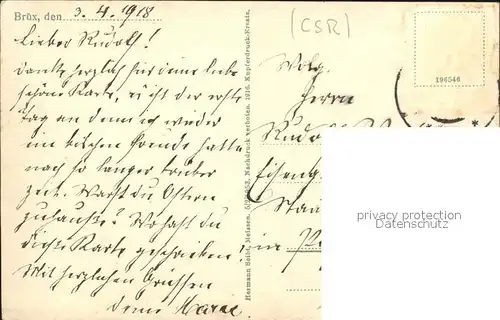 Brüx, den 3. 4. 1918
Lieber Rudolf!
danke herzlich für deine liebe
schöne Karte, es ist der erste
Tag an dem ich wieder
ein bischen Freude hatte
nach so langer trüber
Zeit. Warst du Ostern
zuhause? Wo hast du
diese Karte geschrieben?
Mit herzlichen Grüssen
deine Marie
Hermann Seibt, Meissen. Nachdruck verboten. 1916. Kupferdruck-Ersatz.
(CSR)
196546
Wolg.
Herrn
in
privacy protection
Datenschutz